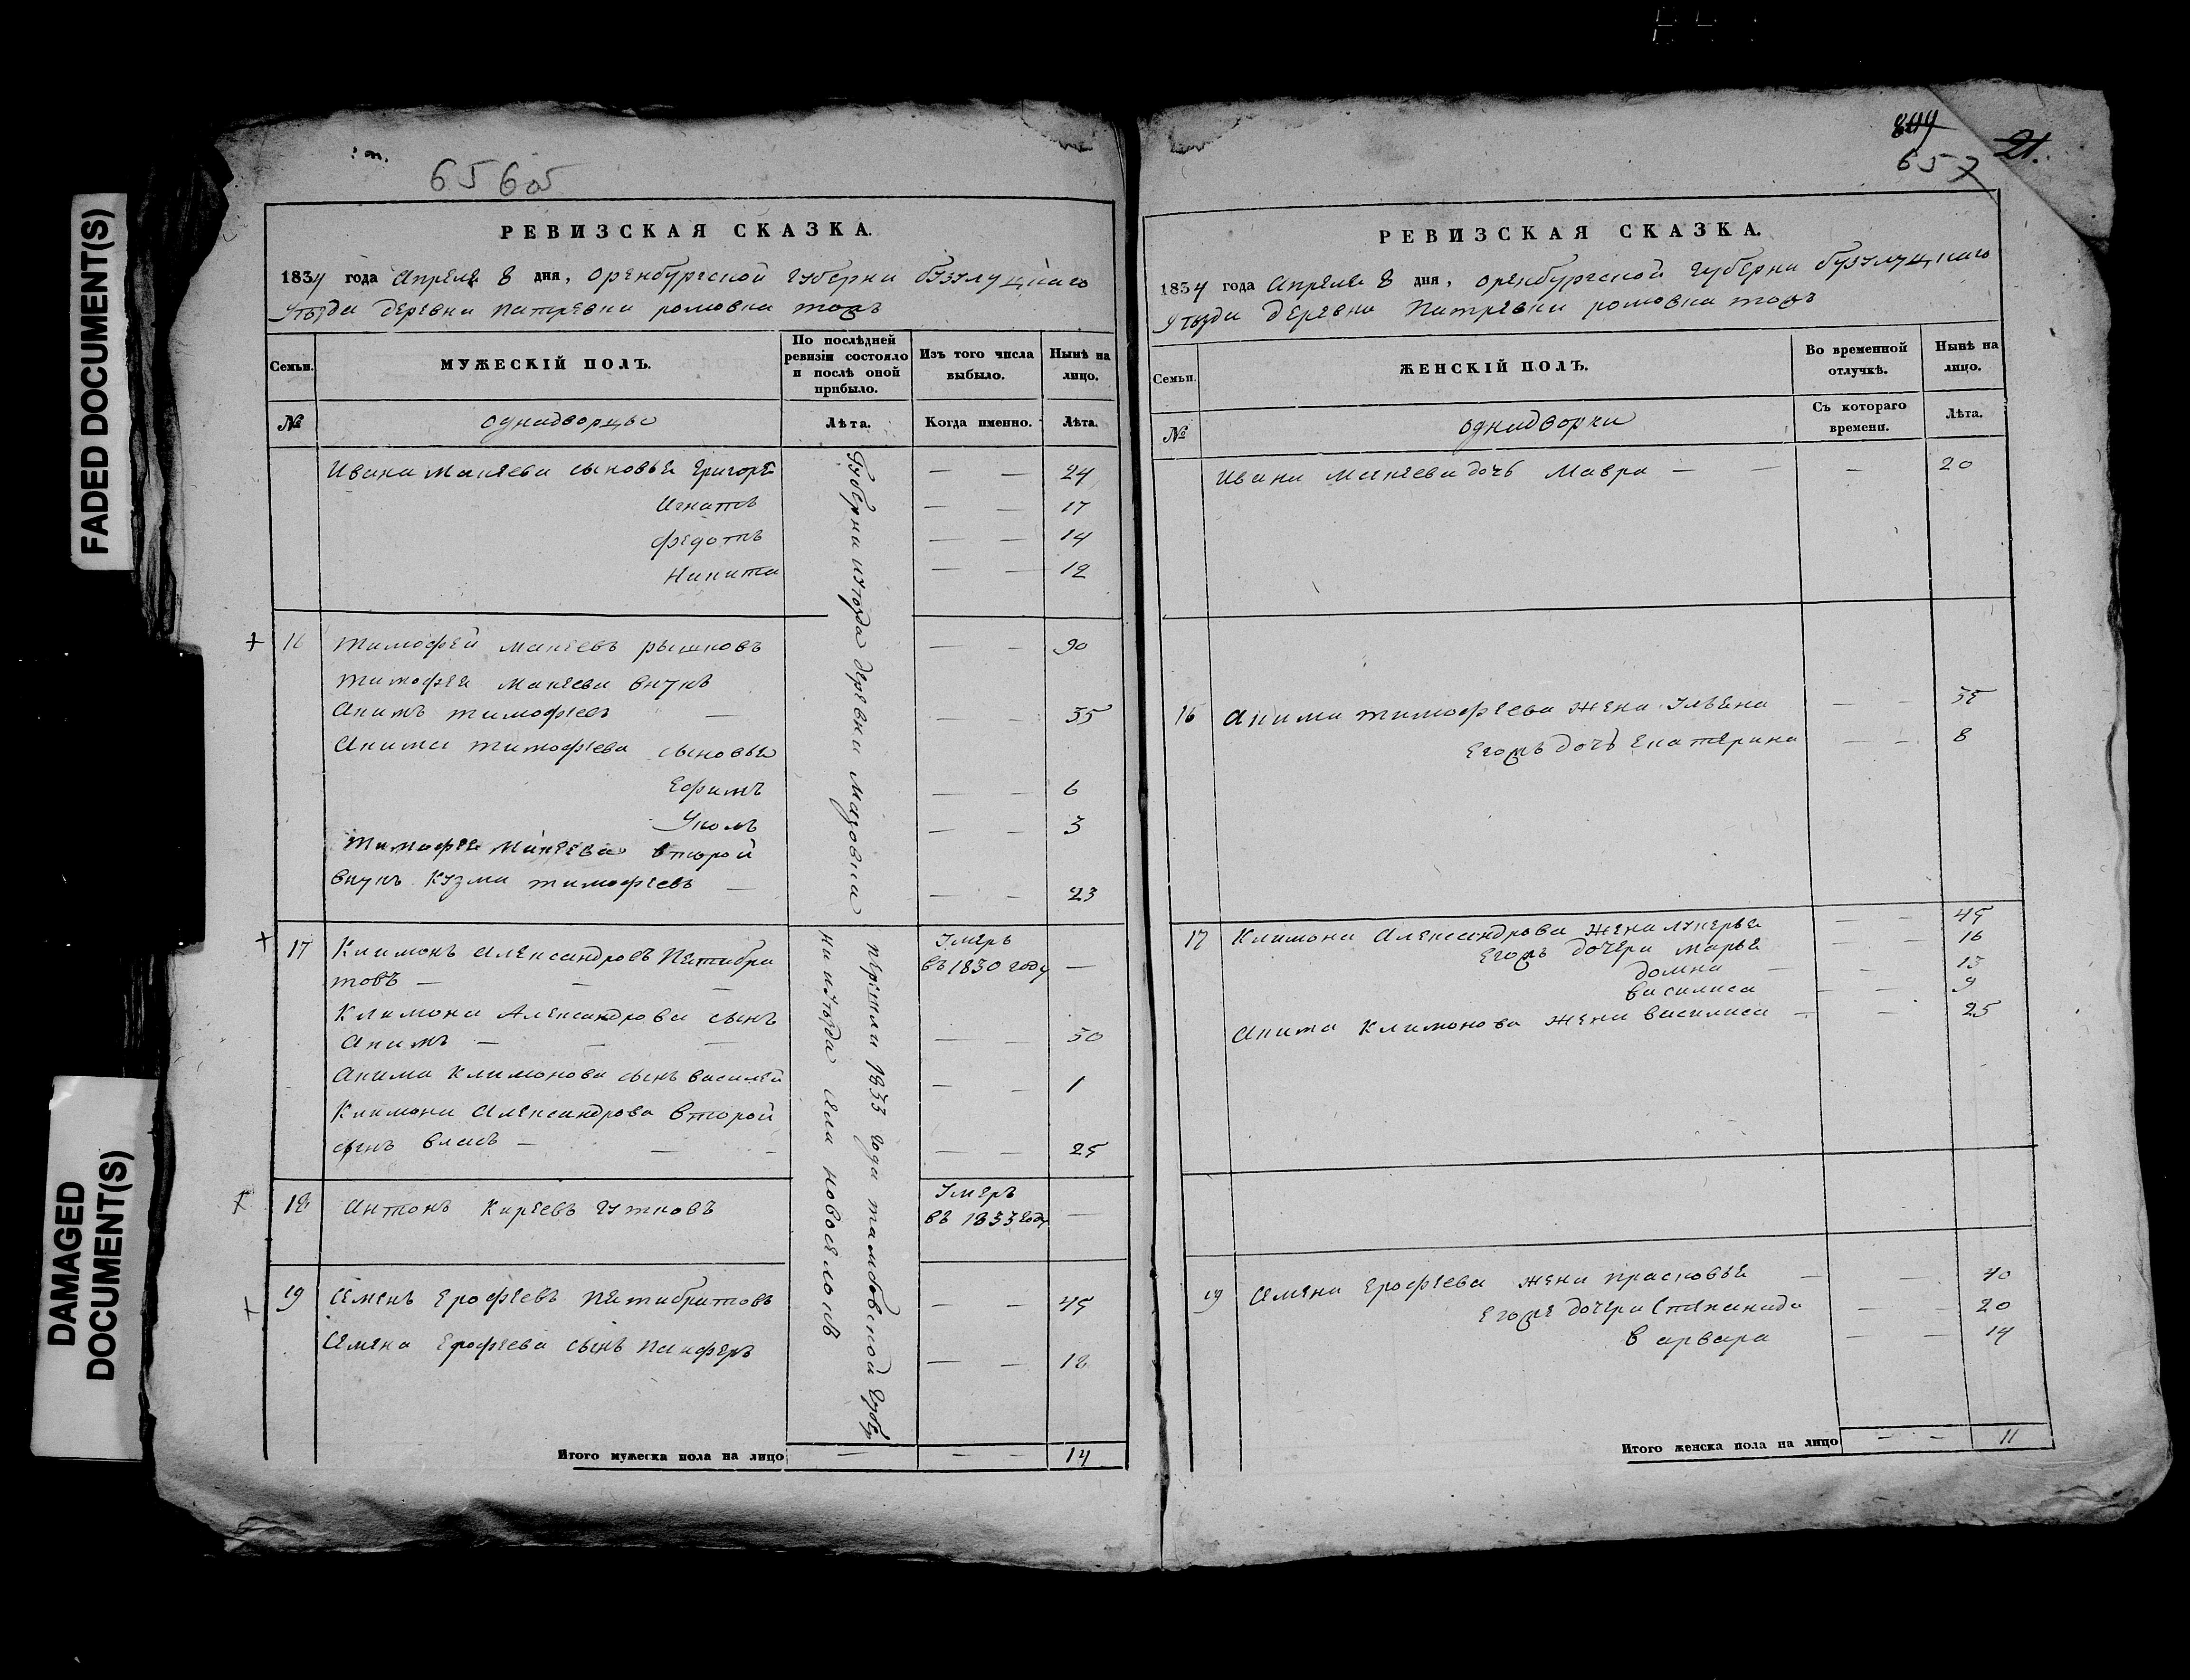 FADED DOCUMENT(S)
DAMAGED
DOCUMENT(S)
656об
РЕВИЗСКАЯ СКАЗКА.
1834 года Апреля 8 дня, Оренбургской губерни бузулуцкаго
Уѣзда деревни Патревки ромовка тожъ
Семьи.
МУЖЕСКІЙ ПОЛЪ.
По послѣдней
ревизіи состояло
и послѣ оной
прибыло.
Изъ того числа
выбыло.
Нынѣ на
лицо.
№
однадворцы
Лѣта.
Когда именно.
Лѣта.
Ивана Макеева сыновья Григоре — — 24
Игнатъ — — 17
Федотъ — — 14
Никита — — 12
16 Тимофей Макеевъ рышковъ — — 90
Тимофея Макеева внукъ
Акимъ тимофеевъ — — — 35
Акима тимофеева сыновья
Ефимъ — — 6
— — 3
Тимофея Макеева второй
внукъ Кузма тимофеевъ — — — 23
17 Климонъ Александровъ Пятибра
товъ — — —
Умеръ
въ 1830 году —
Климона Александрова сынъ
Акимъ — — — — — 50
Акима Климонова сынъ василей — — 1
Климона Александрова второй
сынъ власъ — — — — — 25
18 Антонъ Киреевъ гутковъ
Умеръ
въ 1833 году —
19 Семенъ Ерофеевъ Пятибратовъ — — 45
Семена Ерофеева сынъ Панферъ — — 18
перешли 1833 года тамбовской губер
Губерни уѣзда деревни
уѣзда села
Итого мужеска пола на лицо — — — 14
657
21.
РЕВИЗСКАЯ СКАЗКА.
1834 года Апреля 8 дня, Оренбургской губерни бузулуцкаго
Уѣзда деревни Патревки ромовка тожъ
Семьи.
ЖЕНСКІЙ ПОЛЪ.
Во временной
отлучкѣ.
Нынѣ на
лицо.
№
однадворки
Съ котораго
времени.
Лѣта.
Ивана Макеева дочь Мавра — — — 20
16 Акима тимофеева жена Ульяна — — 35
Егожъ дочь Екатерина — — 8
17 Климона Александрова жена лукерья — — 45
Егожъ дочери марья — — 16
домна — — 13
василиса — — 9
Акима Климонова жена василиса — — 25
19 Семена Ерофеева жена прасковья — 40
Егоже дочери Степанида — — 20
варвара — — 14
Итого женска пола на лицо — — 11